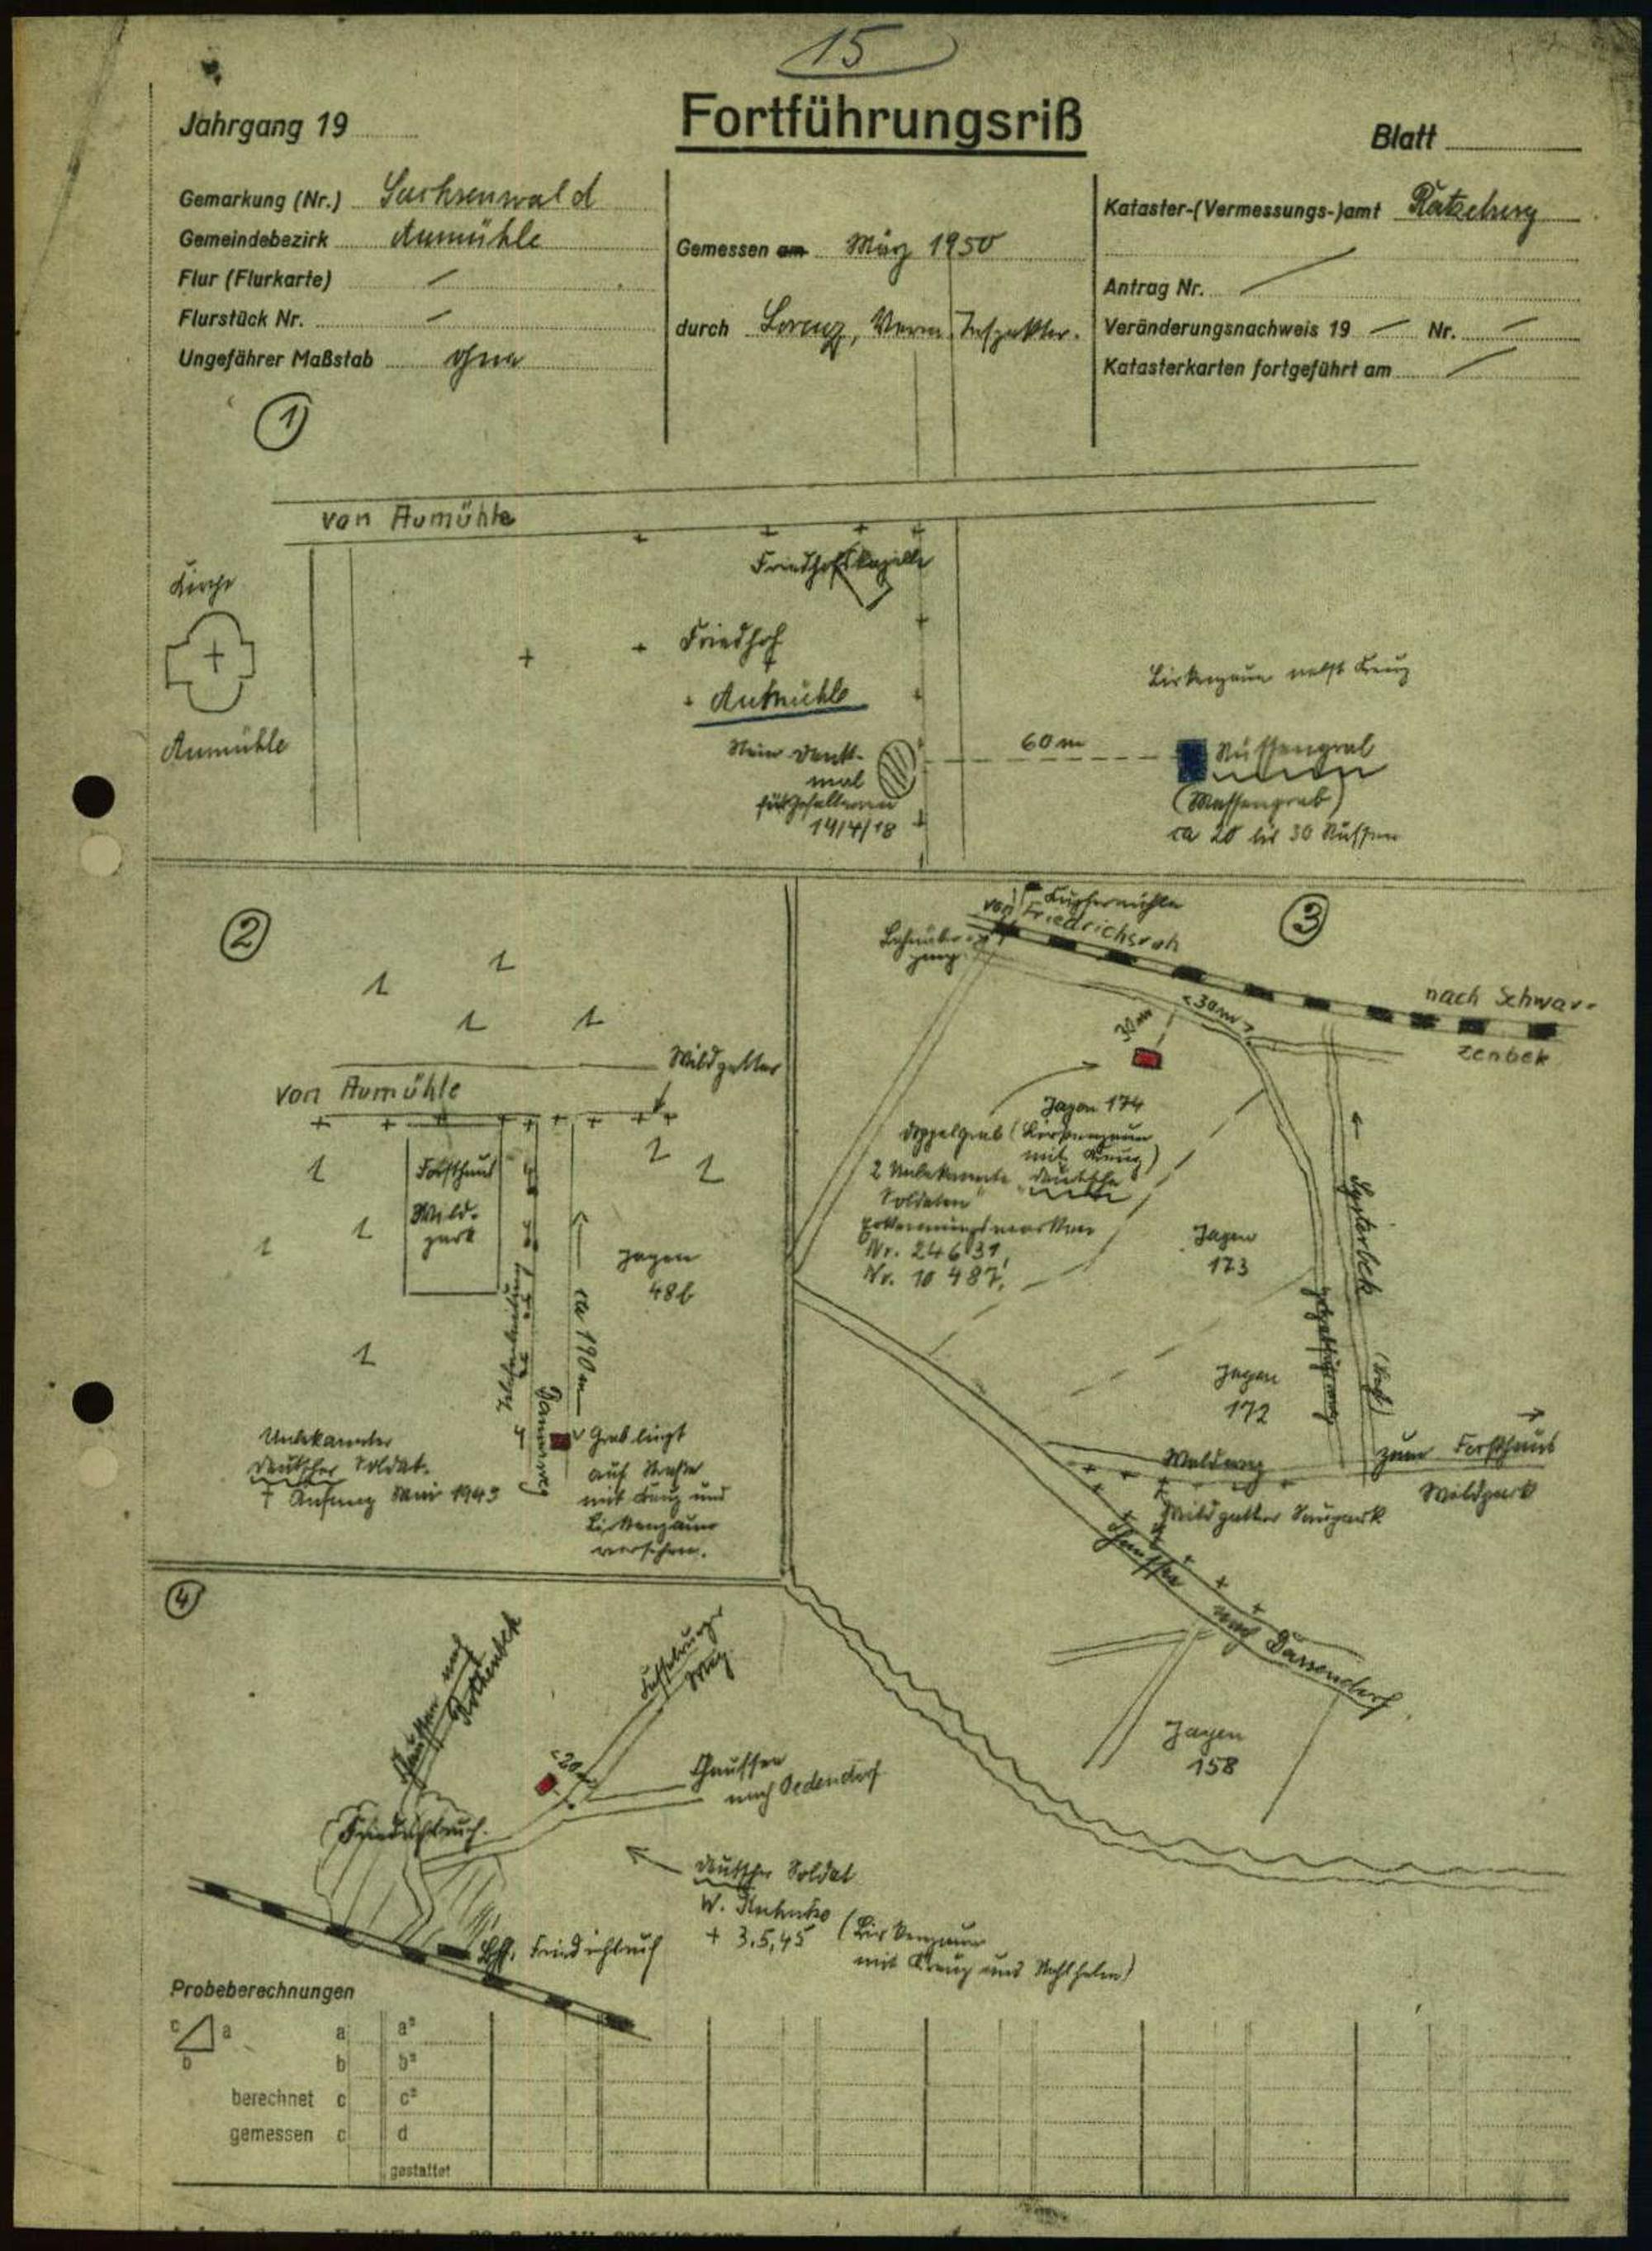 15
Fortführungsriß
Jahrgang 19
Blatt
Gemarkung (Nr.) Sachsenwald
Gemeindebezirk Aumühle
Flur (Flurkarte) —
Flurstück Nr. —
Ungefährer Maßstab ohne
Gemessen am März 1950
durch Lorenz, Verm. Inspektor.
Kataster-(Vermessungs-)amt Ratzeburg
Antrag Nr.
Veränderungsnachweis 19 — Nr. —
Katasterkarten fortgeführt am
1
von Aumühle
Kirche
Aumühle
Friedhofskapelle
Friedhof
Aumühle
Stein Denk-
mal
für Gefallenen
14/18
60 m
Birkenzaun nebst Kreuz
Russengrab
(Massengrab)
ca 20 bis 30 Russen
2
Wildgatter
von Aumühle
Forsthaus
Wild-
park
Jagen
48b
ca 190 m
Telefonleitung
Unbekannter
Deutscher Soldat.
† Anfang Mai 1943
Grab liegt
auf Straße
mit Kreuz und
Birkenzaun
versehen.
3
Kupfermühle
von Friedrichsruh
Bahnüber-
gang
nach Schwar-
zenbek
30 m
<30m>
Jagen 174
Doppelgrab (Birkenzaun
mit Kreuz)
2 Unbekannte "Deutsche
Soldaten"
Erkennungsmarken
Nr. 24631,
Nr. 10 487,
Jagen
173
Jagen
172
(Bach)
zum Forsthaus
Wildpark
Waldweg
Wildgatter Saupark
Chaussee nach Dassendorf
Jagen
158
4
Chaussee nach
Rothenbek
Weg
<20m>
Chaussee
nach Oedendorf
Friedrichsruh.
Deutscher Soldat
† 3.5.45 (Birkenzaun
mit Kreuz und Stahlhelm)
Bhf. Friedrichsruh
Probeberechnungen
c a
b
a a²
b b²
berechnet c c²
gemessen c d
gestattet